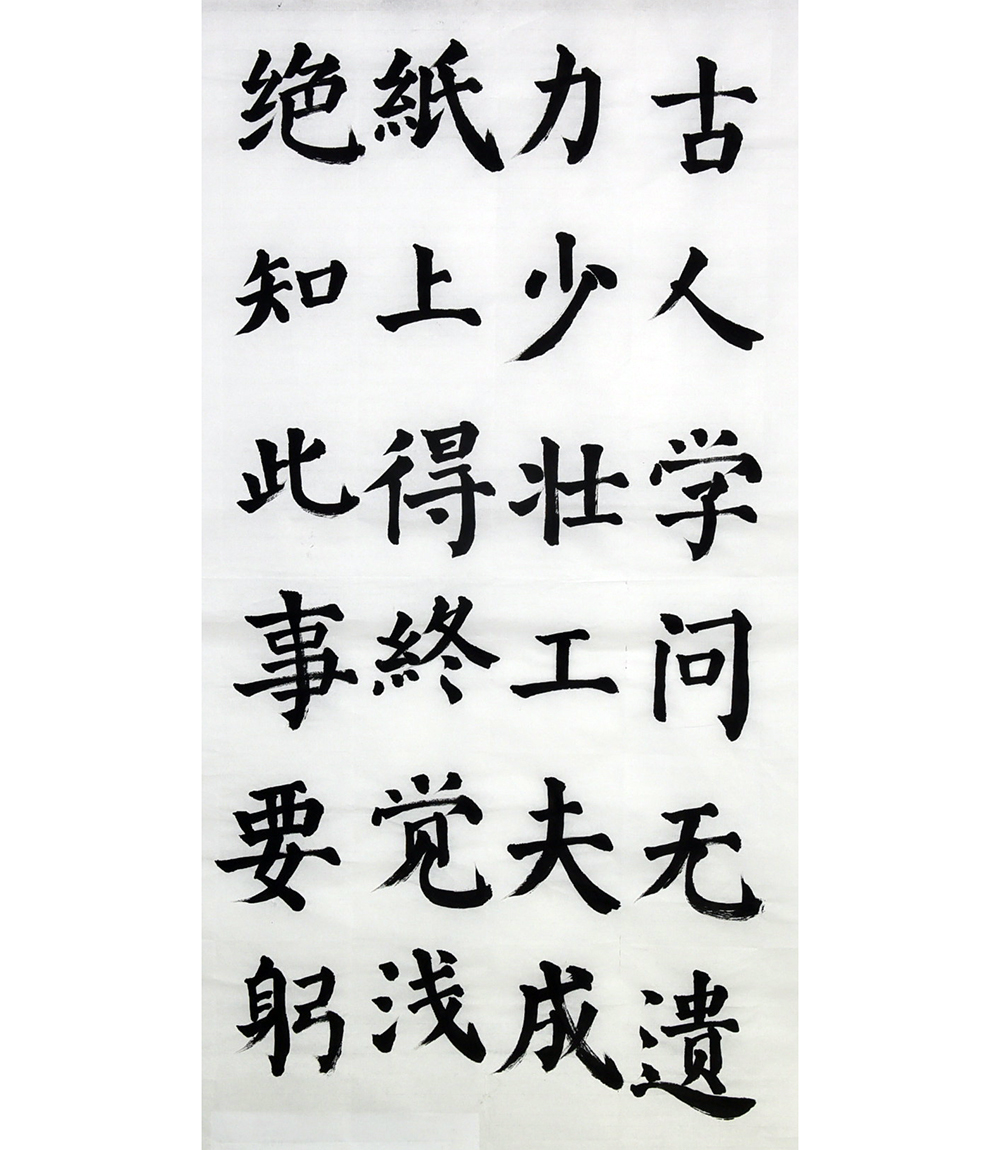 古人学问无遗
力少壮工夫成
紙上得終觉浅
绝知此事要躬